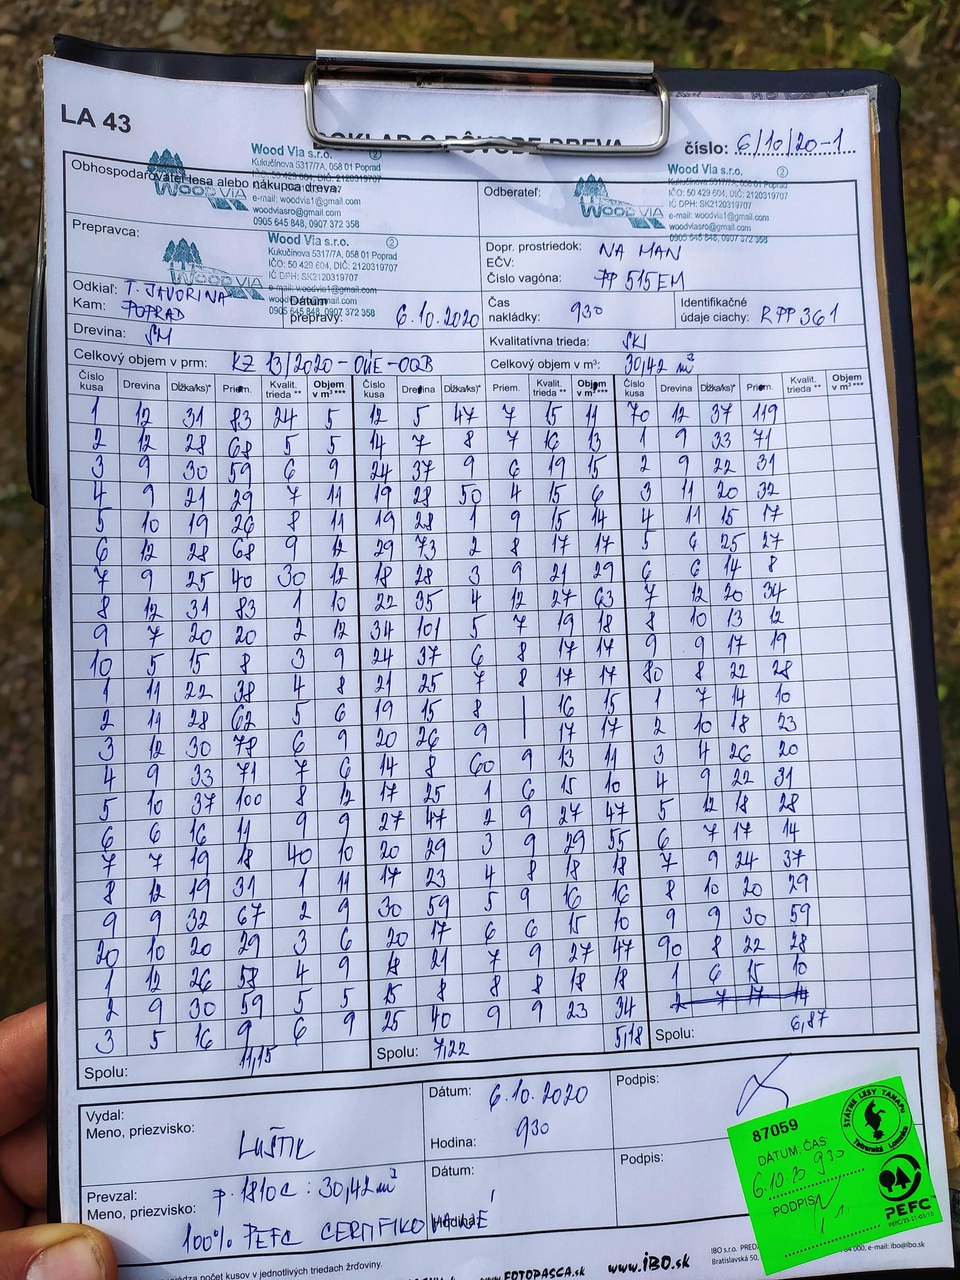 LA 43
DOKLAD O PÔVODE DREVA
číslo: 6/10/20-1
Wood Via s.r.o. 2
Kukučínova 5317/7A, 058 01 Poprad
IČO: 50 429 604, DIČ: 2120319707
e-mail: woodvia1@gmail.com
woodviasro@gmail.com
0905 645 848, 0907 372 358
WOOD VIA
Obhospodarovateľ lesa alebo nákupca dreva:
Wood Via s.r.o. 2
Kukučínova 5317/7A, 058 01 Poprad
IČO: 50 429 604, DIČ: 2120319707
IČ DPH: SK2120319707
e-mail: woodvia1@gmail.com
woodviasro@gmail.com
0905 645 848, 0907 372 358
WOOD VIA
Odberateľ:
Prepravca:
Wood Via s.r.o. 2
Kukučínova 5317/7A, 058 01 Poprad
IČO: 50 429 604, DIČ: 2120319707
IČ DPH: SK2120319707
e-mail: woodvia1@gmail.com
0905 645 848, 0907 372 358
WOOD VIA
Dopr. prostriedok: NA MAN
EČV:
Číslo vagóna: PP 515EM
Odkiaľ: T. JAVORINA
Kam: POPRAD
Dátum prepravy: 6.10.2020
Čas nakládky: 930
Identifikačné údaje ciachy: RPP361
Drevina: SM
Kvalitatívna trieda: SKI
Celkový objem v prm: KZ 13/2020-OÚE-OQB
Celkový objem v m³: 30,42 m³
Číslo kusa Drevina Dĺžka/ks)* Priem. Kvalit. trieda ** Objem v m³ *** Číslo kusa Drevina Dĺžka/ks)* Priem. Kvalit. trieda ** Objem v m³ *** Číslo kusa Drevina Dĺžka/ks)* Priem. Kvalit. trieda ** Objem v m³ ***
1 12 31 83 24 5 12 5 47 7 15 11 70 12 37 119
2 12 28 68 5 5 14 7 8 7 16 13 1 9 33 71
3 9 30 59 6 9 24 37 9 6 19 15 2 9 22 31
4 9 21 29 7 11 19 28 50 4 15 6 3 11 20 32
5 10 19 26 8 11 19 28 1 9 15 14 4 11 15 17
6 12 28 68 9 12 29 73 2 8 17 17 5 6 25 27
7 9 25 40 30 12 18 28 3 9 21 29 6 6 14 8
8 12 31 83 1 10 22 35 4 12 27 63 7 12 20 34
9 7 20 20 2 12 34 101 5 7 19 18 8 10 13 12
10 5 15 8 3 9 24 37 6 8 17 17 9 9 17 19
1 11 22 38 4 8 21 25 7 8 17 17 80 8 22 28
2 11 28 62 5 6 19 15 8 | 16 15 1 7 14 10
3 12 30 78 6 9 20 26 9 | 17 17 2 10 18 23
4 9 33 71 7 6 14 8 60 9 13 11 3 4 26 20
5 10 37 100 8 12 17 25 1 6 15 10 4 9 22 31
6 6 16 11 9 9 27 47 2 9 27 47 5 12 18 28
7 7 19 18 40 10 20 29 3 9 29 55 6 7 17 14
8 12 19 31 1 11 17 23 4 8 18 18 7 9 24 37
9 9 32 67 2 9 30 59 5 9 16 16 8 10 20 29
20 10 20 29 3 6 20 17 6 6 15 10 9 9 30 59
1 12 26 58 4 9 18 21 7 9 27 47 90 8 22 28
2 9 30 59 5 5 15 8 8 8 18 18 1 6 15 10
3 5 16 9 6 9 25 40 9 9 23 34 2 7 17 14
Spolu: 11,15 Spolu: 7,22 5,18 Spolu: 6,87
Vydal:
Meno, priezvisko: LUŠTIK
Dátum: 6.10.2020
Hodina: 930
Podpis:
Prevzal:
Meno, priezvisko: P-1810C: 30,42 m³
Dátum:
Hodina:
Podpis:
100% PEFC CERTIFIKOVANÉ
87059
DÁTUM, ČAS
6.10.20 930
PODPIS
ŠTÁTNE LESY TANAPU
Tatranská Lomnica
PEFC
PEFC/23-21-03/10
vádza počet kusov v jednotlivých triedach žrďoviny.
www.FOTOPASCA.sk
www.iBO.sk
IBO s.r.o.
Bratislavská 50,
e-mail: ibo@ibo.sk